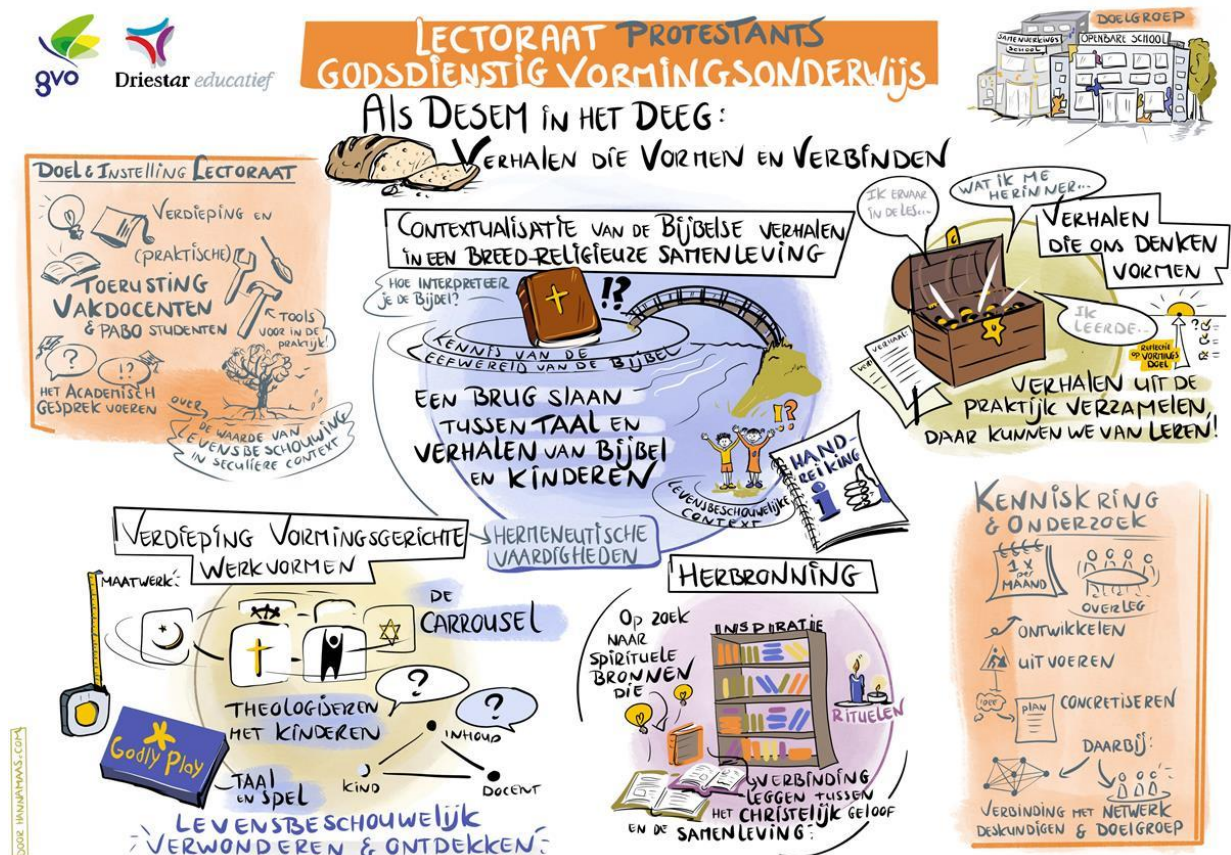 gvo
Driestar educatief
LECTORAAT PROTESTANTS
GODSDIENSTIG VORMINGSONDERWIJS
ALS DESEM IN HET DEEG:
VERHALEN DIE VORMEN EN VERBINDEN
DOELGROEP
SAMENWERKINGS
SCHOOL
OPENBARE SCHOOL
DOEL & INSTELLING LECTORAAT
VERDIEPING EN
(PRAKTISCHE)
TOERUSTING
VAKDOCENTEN
& PABO STUDENTEN
TOOLS
VOOR IN DE
PRAKTIJK!
?
!?
HET ACADEMISCH
GESPREK VOEREN
OVER
DE WAARDE VAN
LEVENSBESCHOUWING
IN SECULIERE CONTEXT
CONTEXTUALISATIE VAN DE BIJBELSE VERHALEN
IN EEN BREED-RELIGIEUZE SAMENLEVING
HOE INTERPRETEER
JE DE BIJBEL?
!?
KENNIS VAN DE
LEEFWERELD VAN DE BIJBEL
EEN BRUG SLAAN
TUSSEN TAAL EN
VERHALEN VAN BIJBEL
EN KINDEREN
!?
LEVENSBESCHOUWELIJKE
CONTEXT
HAND-
REIKING
i
HERMENEUTISCHE
VAARDIGHEDEN
IK ERVAAR
IN DE LES...
WAT IK ME
HERINNER...
VERHALEN
DIE ONS DENKEN
VORMEN
IK
LEERDE...
VERHAAL:
REFLECTIE
OP VORMINGS
DOEL
VERHALEN UIT DE
PRAKTIJK VERZAMELEN,
DAAR KUNNEN WE VAN LEREN!
VERDIEPING VORMINGSGERICHTE
WERKVORMEN
MAATWERK:
DE
CARROUSEL
THEOLOGISEREN
MET KINDEREN
?
?
INHOUD
KIND
DOCENT
Godly Play
TAAL
EN SPEL
LEVENSBESCHOUWELIJK
VERWONDEREN & ONTDEKKEN
HERBRONNING
OP ZOEK
NAAR
SPIRITUELE
BRONNEN
DIE
INSPIRATIE
RITUELEN
VERBINDING
LEGGEN TUSSEN
HET CHRISTELIJK GELOOF
EN DE SAMENLEVING
KENNISKRING
& ONDERZOEK
1 X
PER
MAAND
OVERLEG
ONTWIKKELEN
UITVOEREN
IDEE
PLAN
CONCRETISEREN
DAARBIJ:
VERBINDING MET NETWERK
DESKUNDIGEN & DOELGROEP
DOOR HANNAMAAS.COM